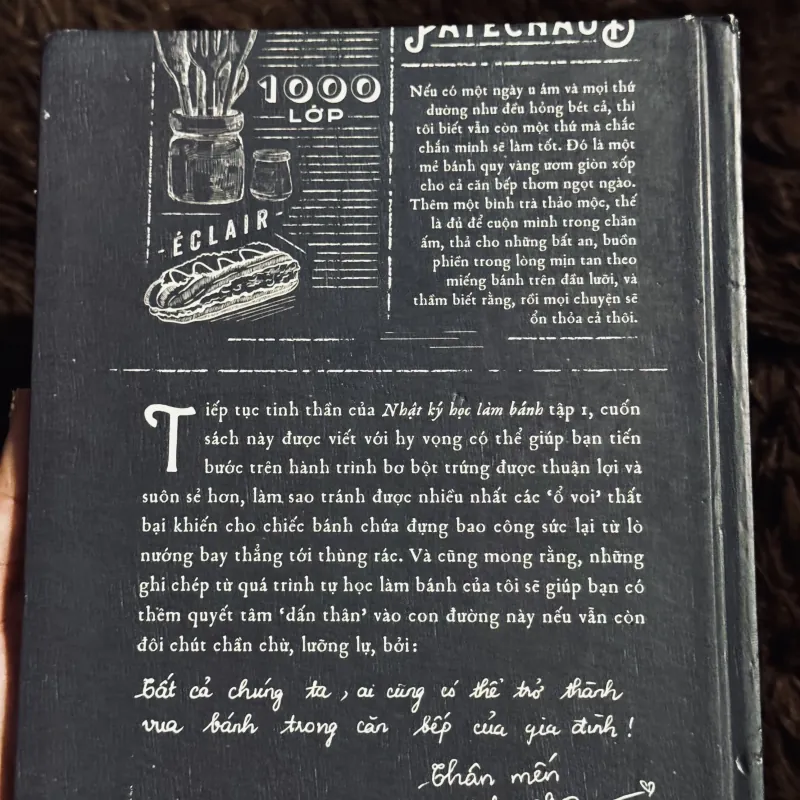 1000
LỚP
ÉCLAIR
PATECHAUD
Nếu có một ngày u ám và mọi thứ
dường như đều hỏng bét cả, thì
tôi biết vẫn còn một thứ mà chắc
chắn mình sẽ làm tốt. Đó là một
mẻ bánh quy vàng ươm giòn xốp
cho cả căn bếp thơm ngọt ngào.
Thêm một bình trà thảo mộc, thế
là đủ để cuộn mình trong chăn
ấm, thả cho những bất an, buồn
phiền trong lòng mịn tan theo
miếng bánh trên đầu lưỡi, và
thầm biết rằng, rồi mọi chuyện sẽ
ổn thỏa cả thôi.
Tiếp tục tinh thần của Nhật ký học làm bánh tập 1, cuốn
sách này được viết với hy vọng có thể giúp bạn tiến
bước trên hành trình bơ bột trứng được thuận lợi và
suôn sẻ hơn, làm sao tránh được nhiều nhất các ‘ổ voi’ thất
bại khiến cho chiếc bánh chứa đựng bao công sức lại từ lò
nướng bay thẳng tới thùng rác. Và cũng mong rằng, những
ghi chép từ quá trình tự học làm bánh của tôi sẽ giúp bạn có
thêm quyết tâm ‘dấn thân’ vào con đường này nếu vẫn còn
đôi chút chần chừ, lưỡng lự, bởi:
Tất cả chúng ta, ai cũng có thể trở thành
vua bánh trong căn bếp của gia đình!
Thân mến